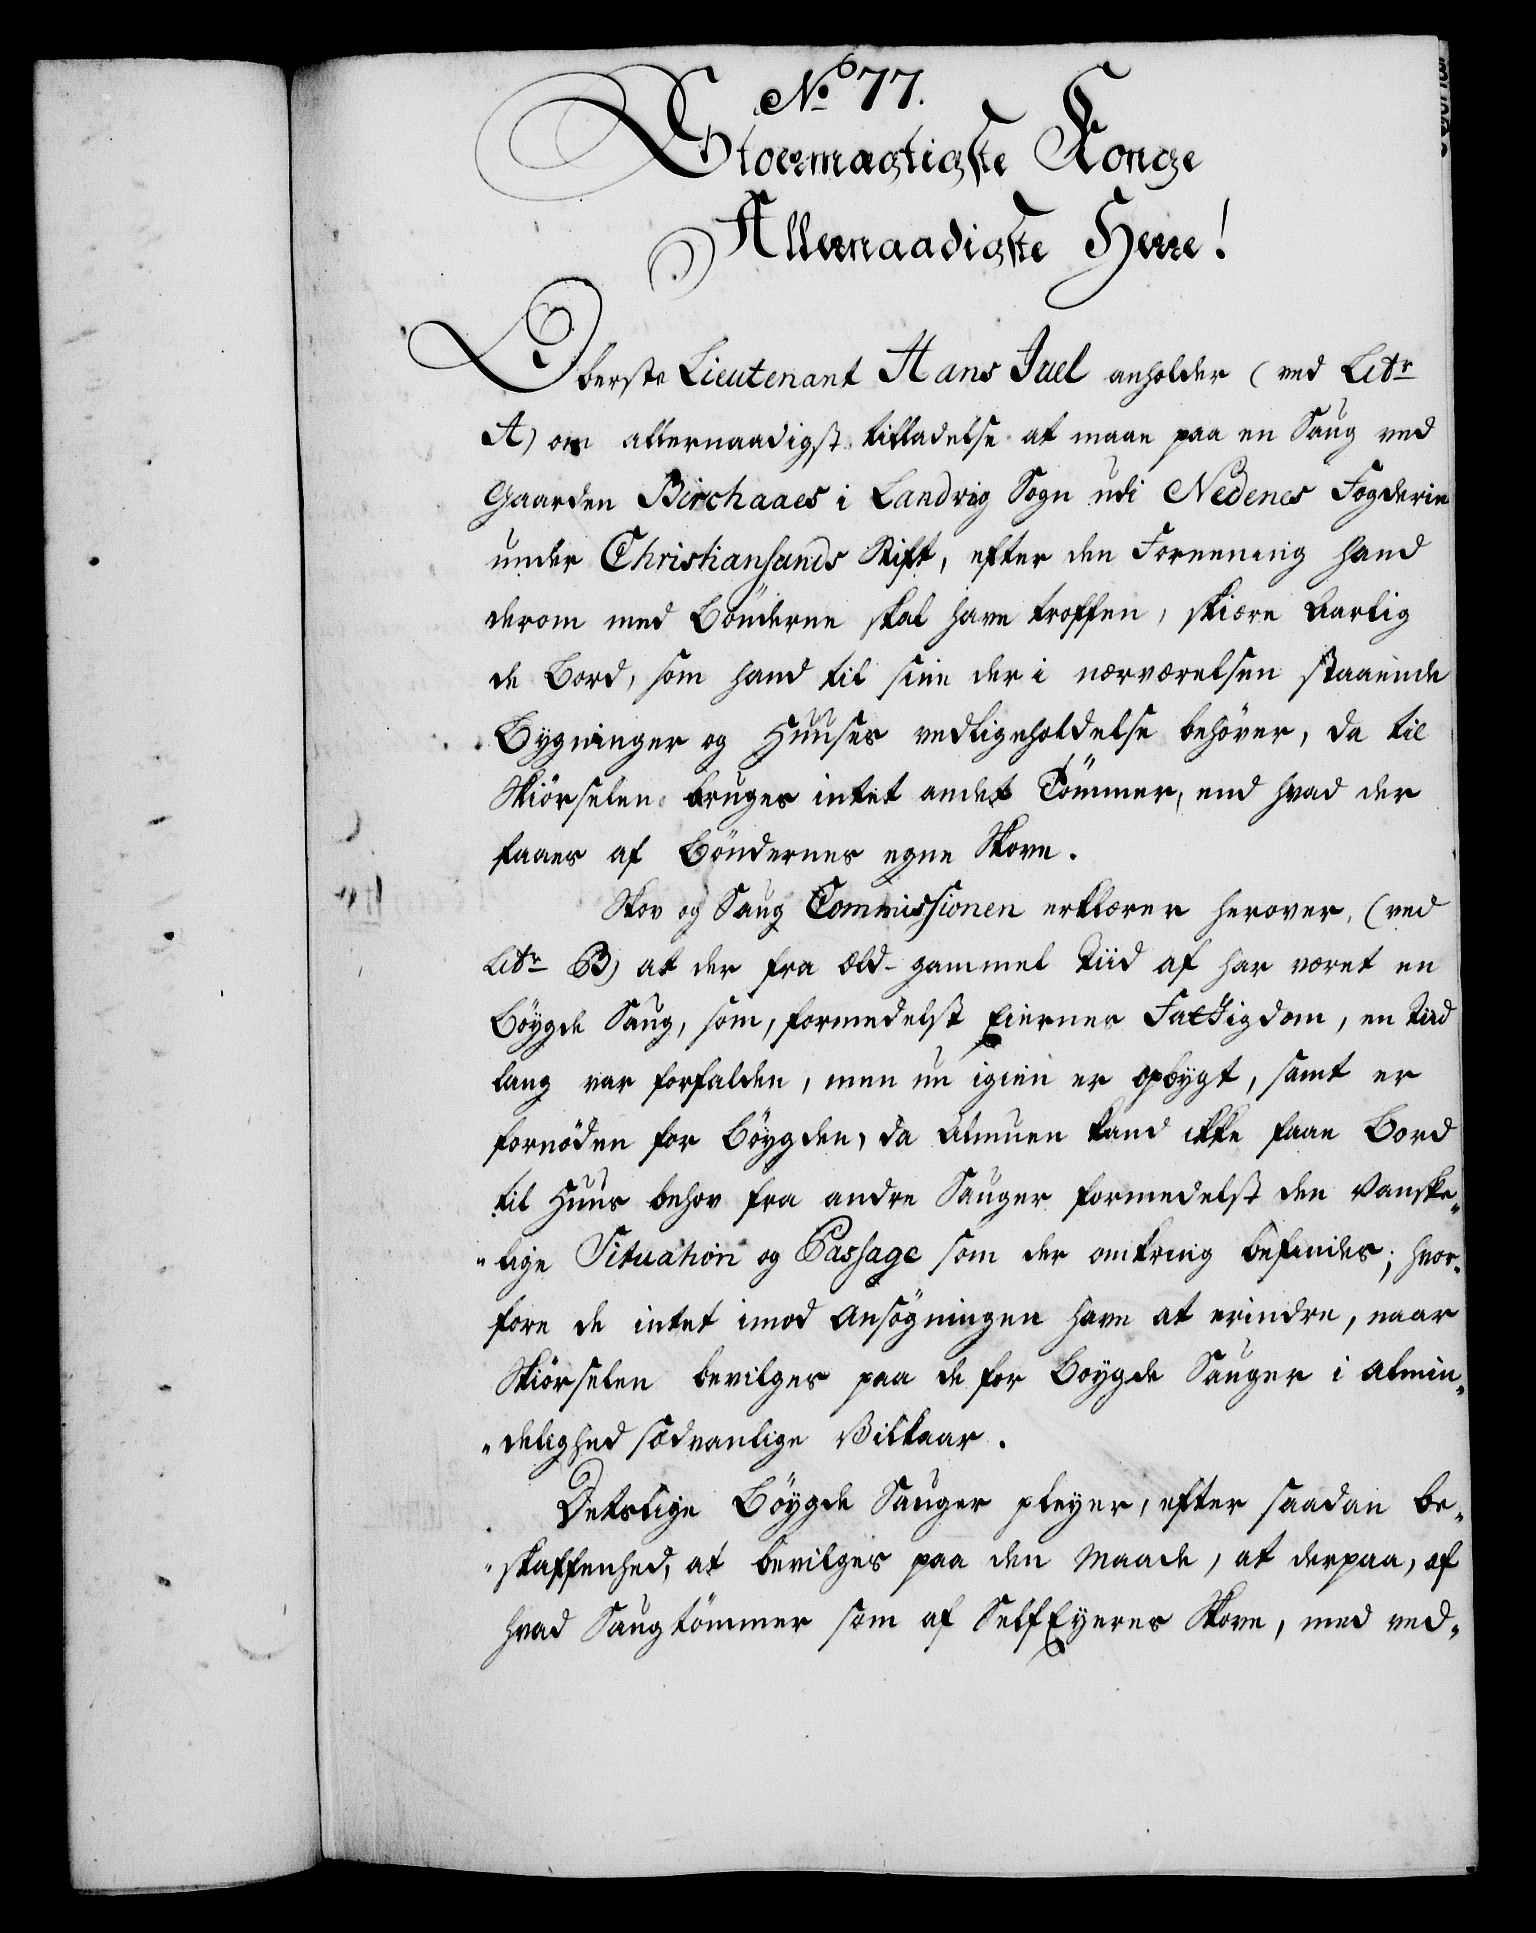 No 77.
Stoermægtigste Konge
Allernaadigste Herre!
Oberste Lieutenant Hans Juel anholder (ved Litr
A) om allernaadigst tilladelse at maae paa en Saug ved
Gaarden Birchaaes i Landvig Sogn udi Nedenes Fogderie
under Christiansands Stift, efter den Foreening hand
derom med Bönderne skal have troffen, skiære Aarlig
de Bord, som hand til sine der i nærværelsen staaende
Bygninger og Huuses vedligeholdelse behöver, da til
Skiörselen bruges intet andet Tömmer, end hvad der
faaes af Böndernes egne Skove.
Skov og Saug Commissionen erklærer herover, (ved
Litr B) at der fra Æld-gammel Tiid af har været en
Böygde Saug, som, formedelst Eiernes Fattigdom, en Tiid
lang var forfalden, men nu igien er opbygt, samt er
fornöden for Böygden, da Almuen kand ikke faae Bord
til Huus behov fra andre Sauger formedelst den vanske„
„lige Situation og Passage som der omkring befindes; hvor„
fore de intet imod Ansögningen have at erindre, naar
Skiörselen bevilges paa de for Boygde Sauger i Almin„
„delighed sædvanlige Vilkaar.
Detslige Böygde Sauger pleyer, efter saadan be„
„skaffenhed, at bevilges paa den Maade, at derpaa, af
hvad Saugtömmer som af SelfEyernes Skove, med ved„